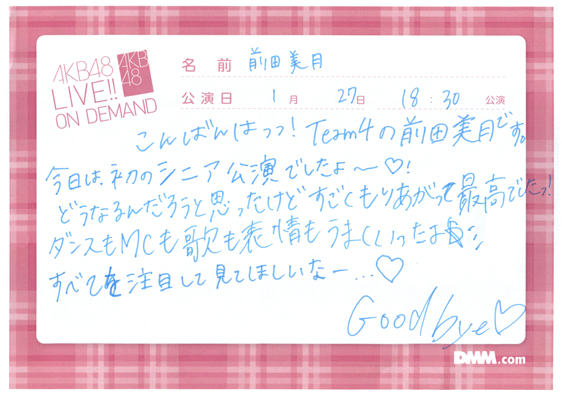 AKB48
LIVE!!
ON DEMAND
AKB
48
名前 前田美月
公演日 1月 27日 18:30 公演
こんばんはっっ!Team4の前田美月です。
今日は、初のシニア公演でしたよ〜♡!
どうなるんだろうと思ったけどすごくもりあがって最高でしたっ!
ダンスもMCも歌も表情もうまくいったよ
すべてを注目して見てほしいなー…♡
Good bye♡
DMM.com